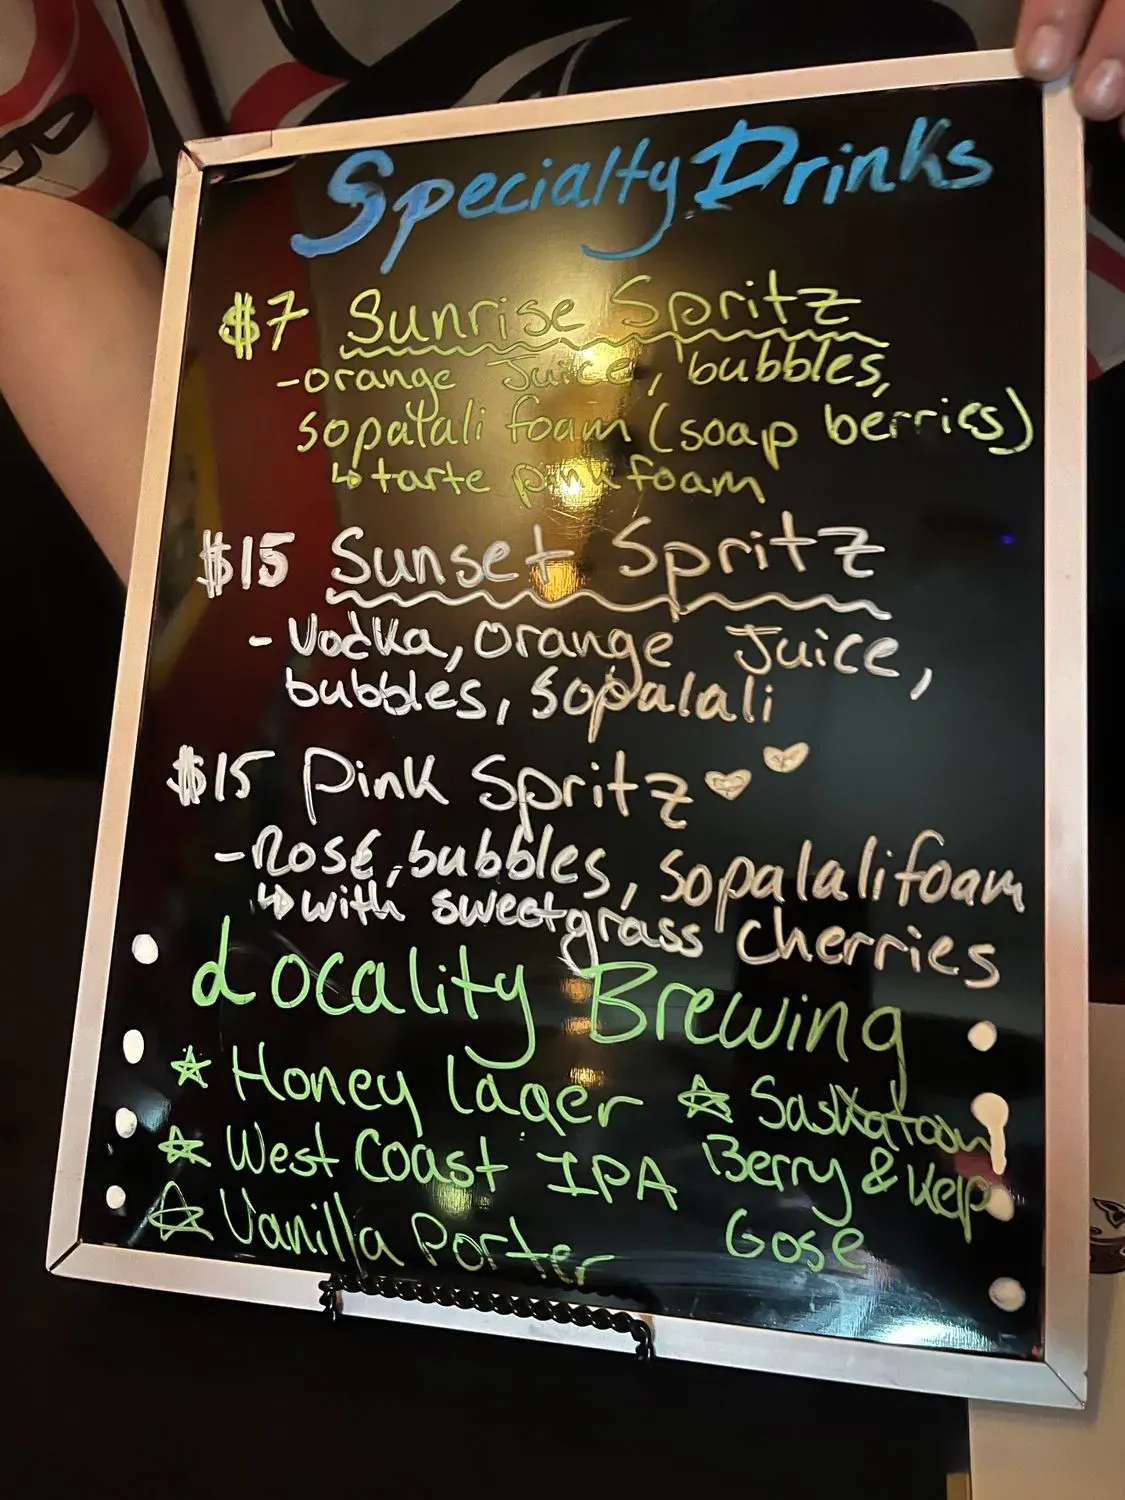 Specialty Drinks
$7 Sunrise Spritz
-orange Juice, bubbles,
sopalali foam (soap berries)
↳ tarte pink foam
$15 Sunset Spritz
- Vodka, orange Juice,
bubbles, sopalali
$15 Pink Spritz ♥ ♥
- Rosé, bubbles, sopalali foam
↳ with sweetgrass cherries
Locality Brewing
☆ Honey lager
☆ West Coast IPA
☆ Vanilla Porter
☆ Saskatoon
Berry & Kelp
Gose